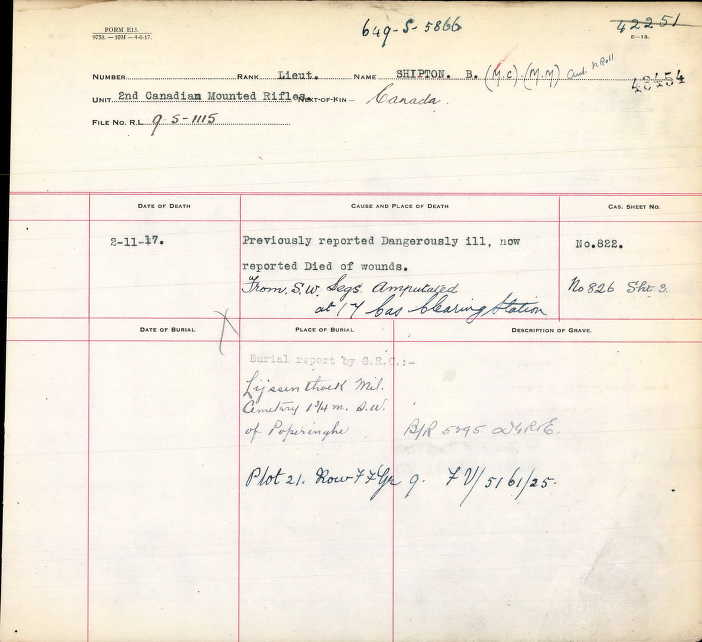 FORM E13.
9753. — 10M — 4-6-17.
649-S-5866
42251
E—13.
NUMBER RANK Lieut. NAME SHIPTON. B. (M.C). (M.M)
48454
UNIT 2nd Canadian Mounted Rifles. NEXT-OF-KIN — Canada.
FILE NO. R.L. 9 S-1115
DATE OF DEATH CAUSE AND PLACE OF DEATH CAS. SHEET NO.
2-11-17. Previously reported Dangerously ill, now No.822.
reported Died of wounds.
From. S.W. Legs Amputated No 826 Sht 3.
at 17 Cas Clearing Station
DATE OF BURIAL PLACE OF BURIAL DESCRIPTION OF GRAVE.
Burial report by G.R.C.:-
Lijssenthoek Mil.
Cemetary 1 3/4 m. S.W.
of Poperinghe B/R 5295
Plot 21. Row FF Gr 9.